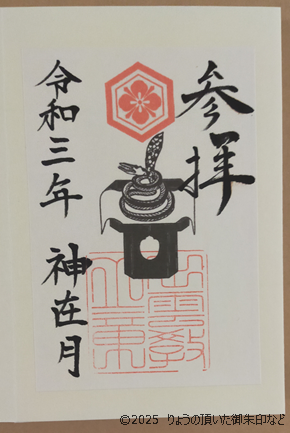 参拝
出雲教
令和三年 神在月
©2025 りょうの頂いた御朱印など